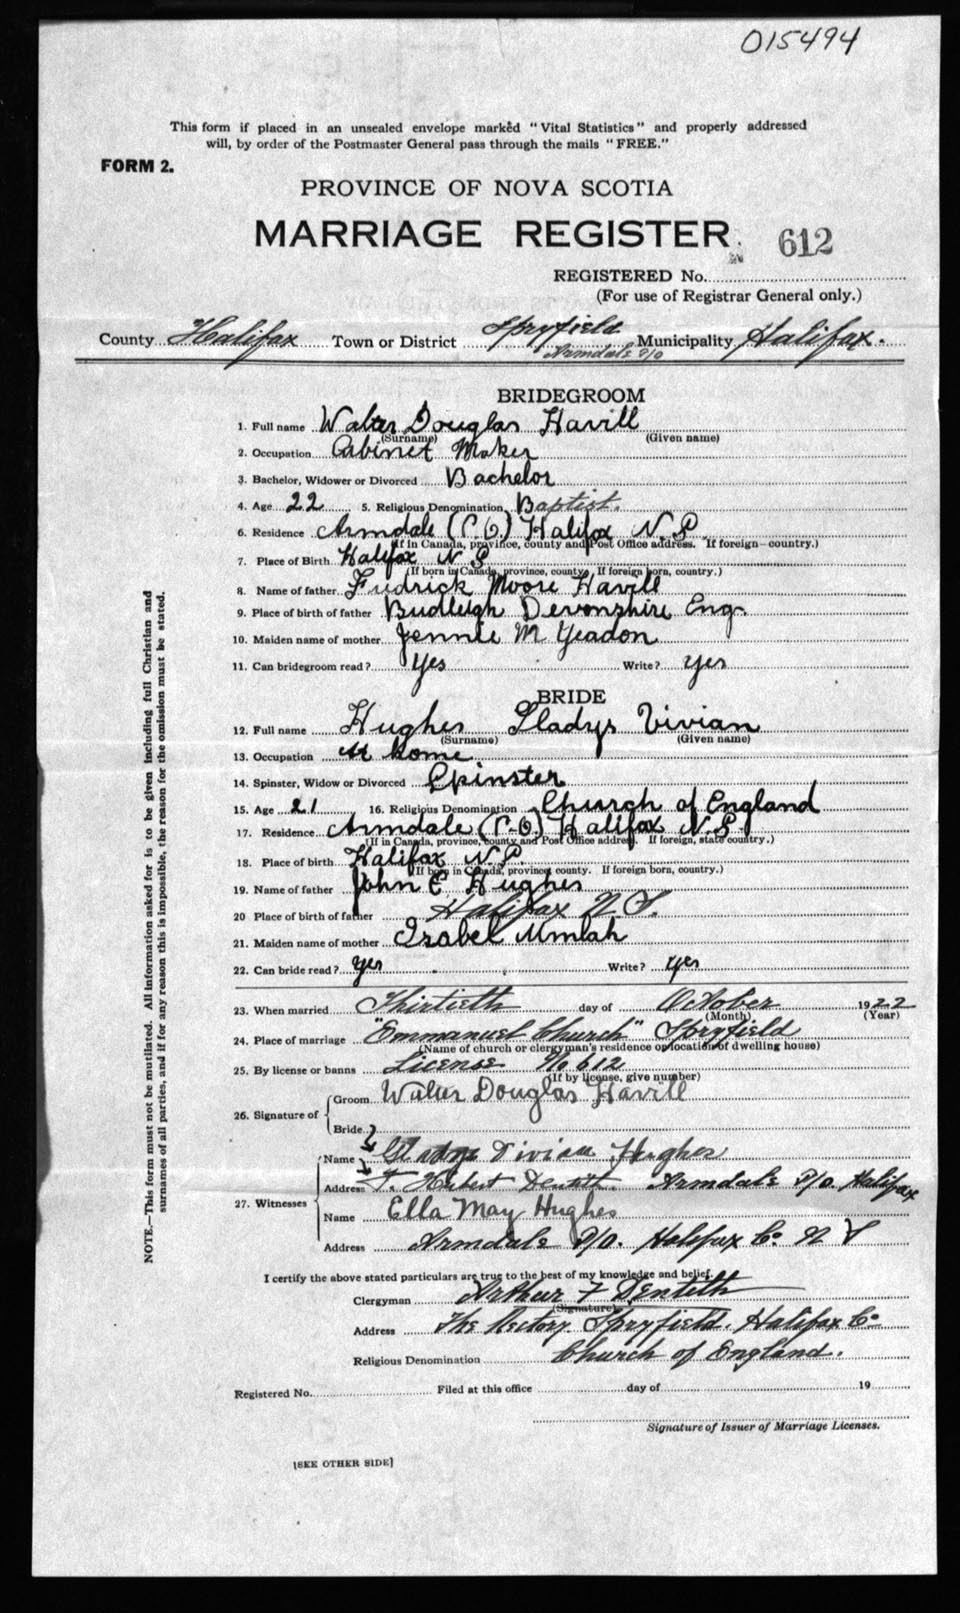 015494
This form if placed in an unsealed envelope marked "Vital Statistics" and properly addressed
will, by order of the Postmaster General pass through the mails "FREE."
FORM 2.
PROVINCE OF NOVA SCOTIA
MARRIAGE REGISTER
612
REGISTERED No.
(For use of Registrar General only.)
County Halifax Town or District Spryfield Municipality Halifax.
Armdale P/O
BRIDEGROOM
1. Full name Walter Douglas Havill
(Surname) (Given name)
2. Occupation Cabinet Maker
3. Bachelor, Widower or Divorced Bachelor
4. Age 22 5. Religious Denomination Baptist.
6. Residence Armdale (P.O.) Halifax N.S.
(If in Canada, province, county and Post Office address. If foreign—country.)
7. Place of Birth Halifax N S
(If born in Canada, province, county. If foreign born, country.)
8. Name of father Fredrick Moore Havill
9. Place of birth of father Budleigh Devonshire Eng.
10. Maiden name of mother Jennie M Yeadon
11. Can bridegroom read? Yes Write? yes
BRIDE
12. Full name Hughes Gladys Vivian
(Surname) (Given name)
13. Occupation At home
14. Spinster, Widow or Divorced Spinster
15. Age 21 16. Religious Denomination Church of England
17. Residence Armdale (P.O) Halifax N.S.
(If in Canada, province, county and Post Office address. If foreign, state country.)
18. Place of birth Halifax N.S.
(If born in Canada, province county. If foreign born, country.)
19. Name of father John E Hughes
20 Place of birth of father Halifax N.S.
21. Maiden name of mother Isabel Umlah
22. Can bride read? yes Write? yes
23. When married Thirtieth day of October 1922
(Month) (Year)
24. Place of marriage "Emmanuel Church" Spryfield
(Name of church or clergyman's residence or location of dwelling house)
25. By license or banns License No 612
(If by license, give number)
26. Signature of
Groom Walter Douglas Havill
Bride
27. Witnesses
Name Gladys Vivian Hughes
Address F. Herbert Dentith. Armdale P/O. Halifax
Name Ella May Hughes
Address Armdale P/O. Halifax Co N S
I certify the above stated particulars are true to the best of my knowledge and belief.
Clergyman Arthur F Dentith
(Signature)
Address The Rectory. Spryfield. Halifax Co
Religious Denomination Church of England.
Registered No. Filed at this office day of 19
Signature of Issuer of Marriage Licenses.
[SEE OTHER SIDE]
NOTE.—This form must not be mutilated. All information asked for is to be given including full Christian and
surnames of all parties, and if for any reason this is impossible, the reason for the omission must be stated.